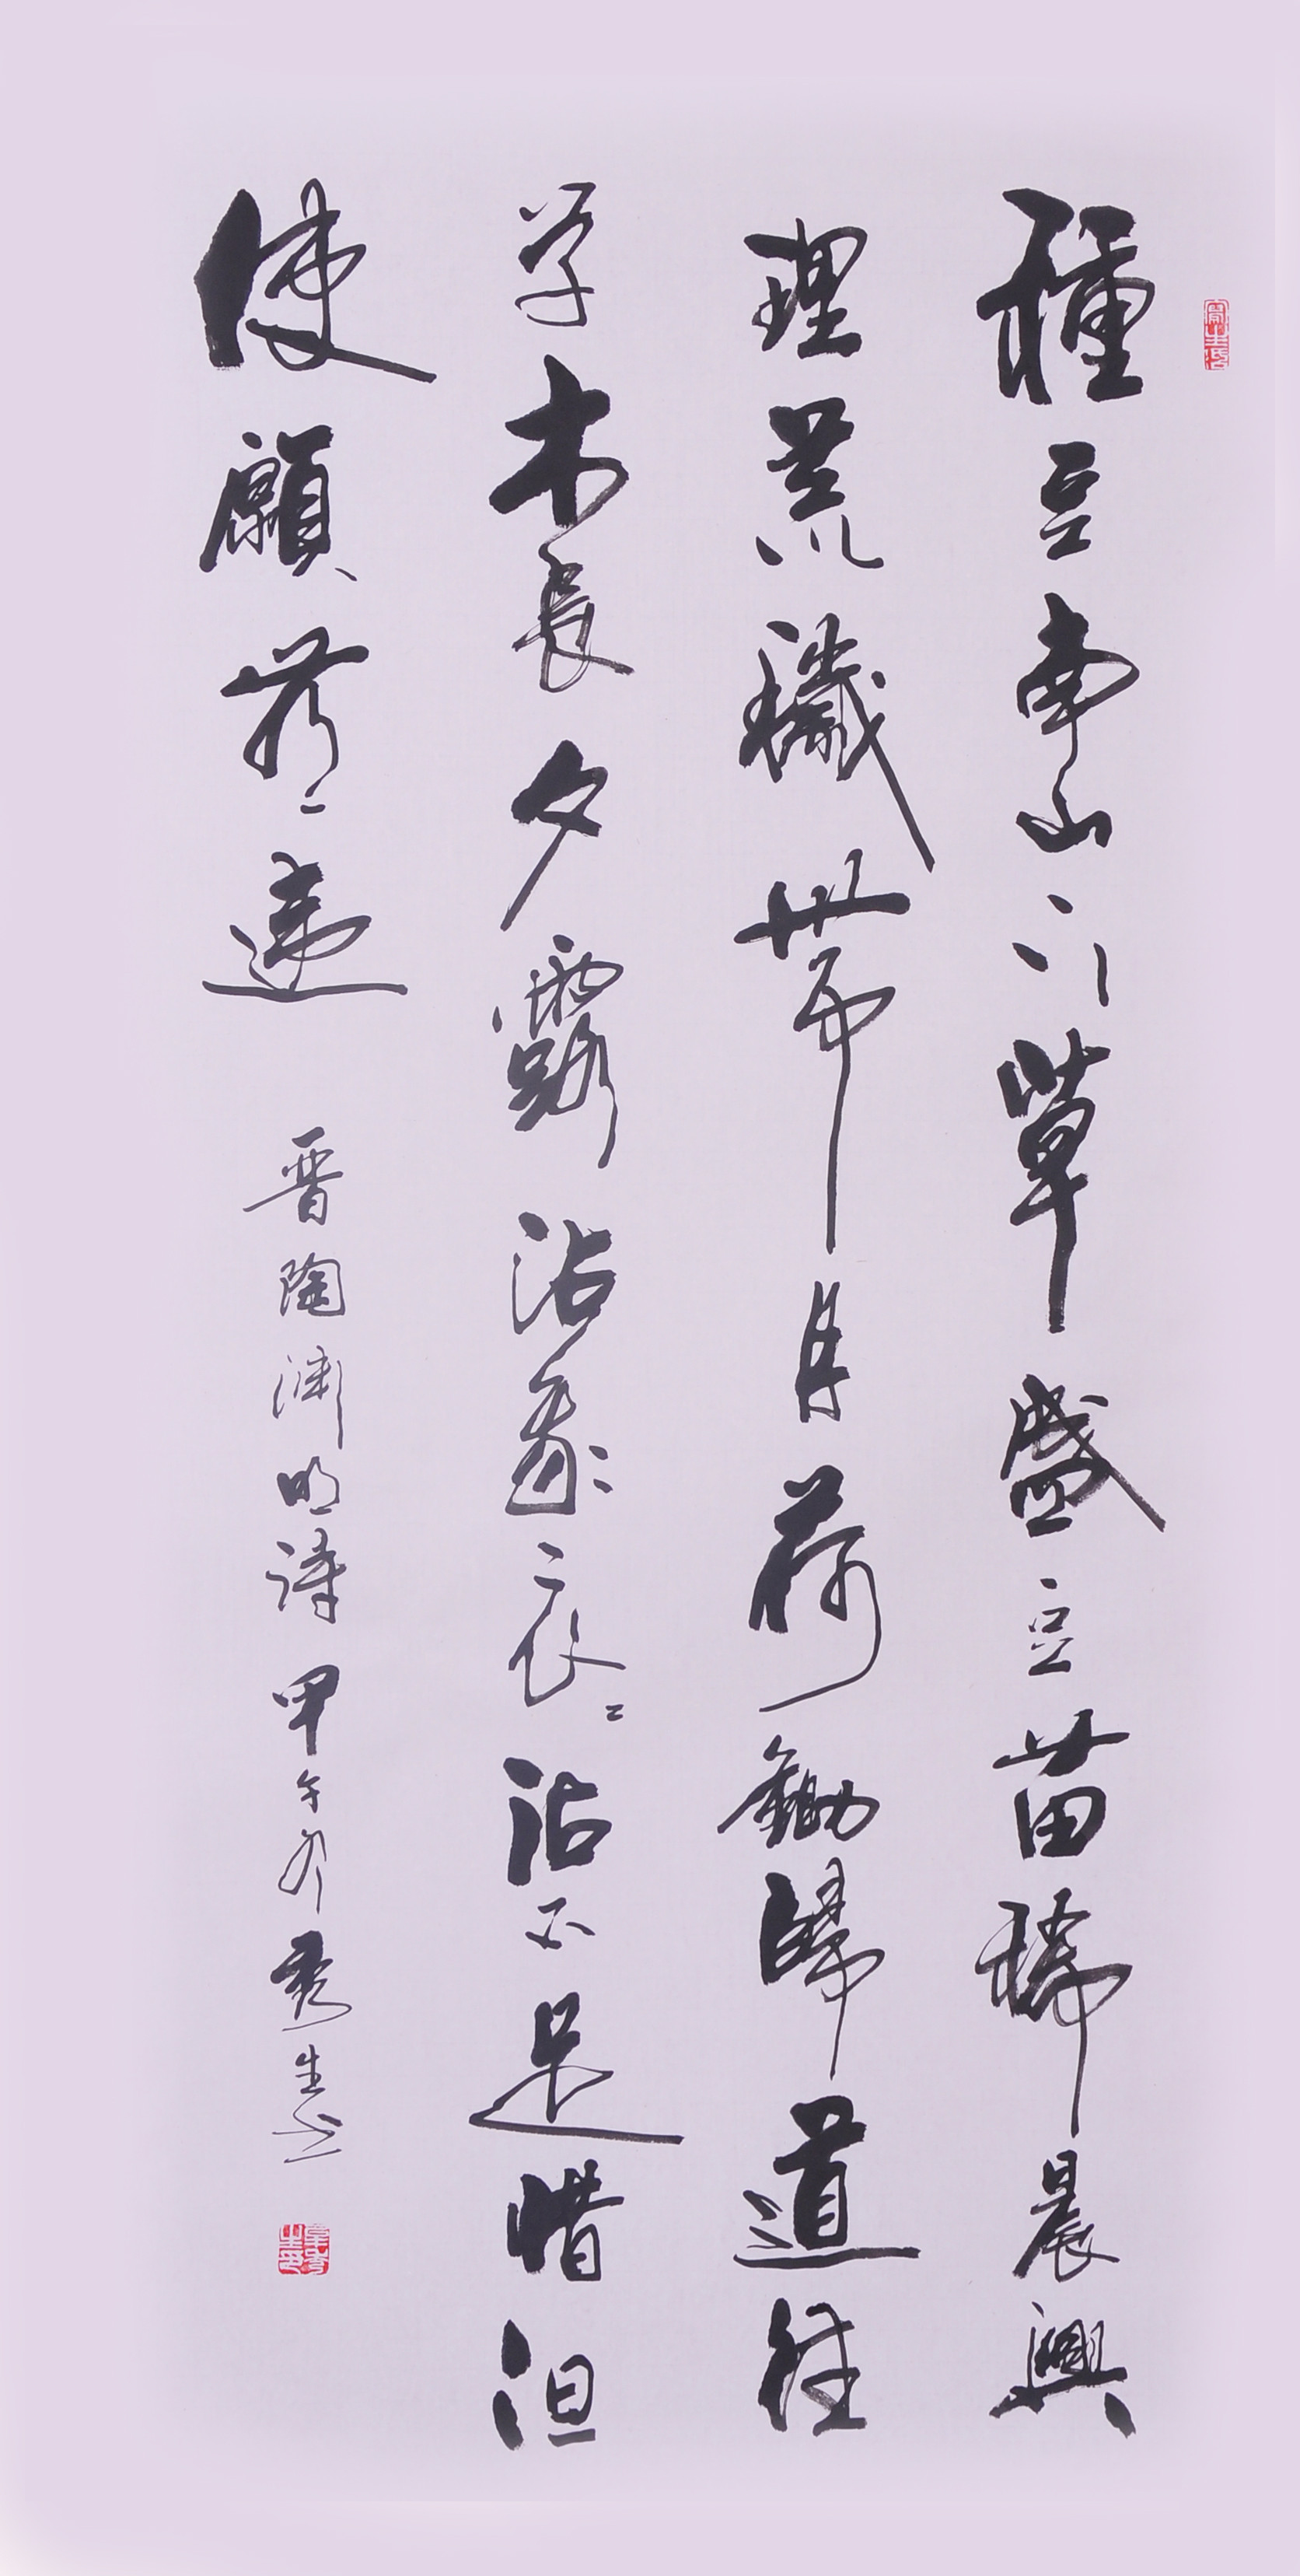 種豆南山下草盛豆苗稀晨興
理荒穢帶月荷鋤歸道往
草木長夕露沾我衣〻沾不足惜但
使願無違 晋陶渊明诗 甲午 秀生书